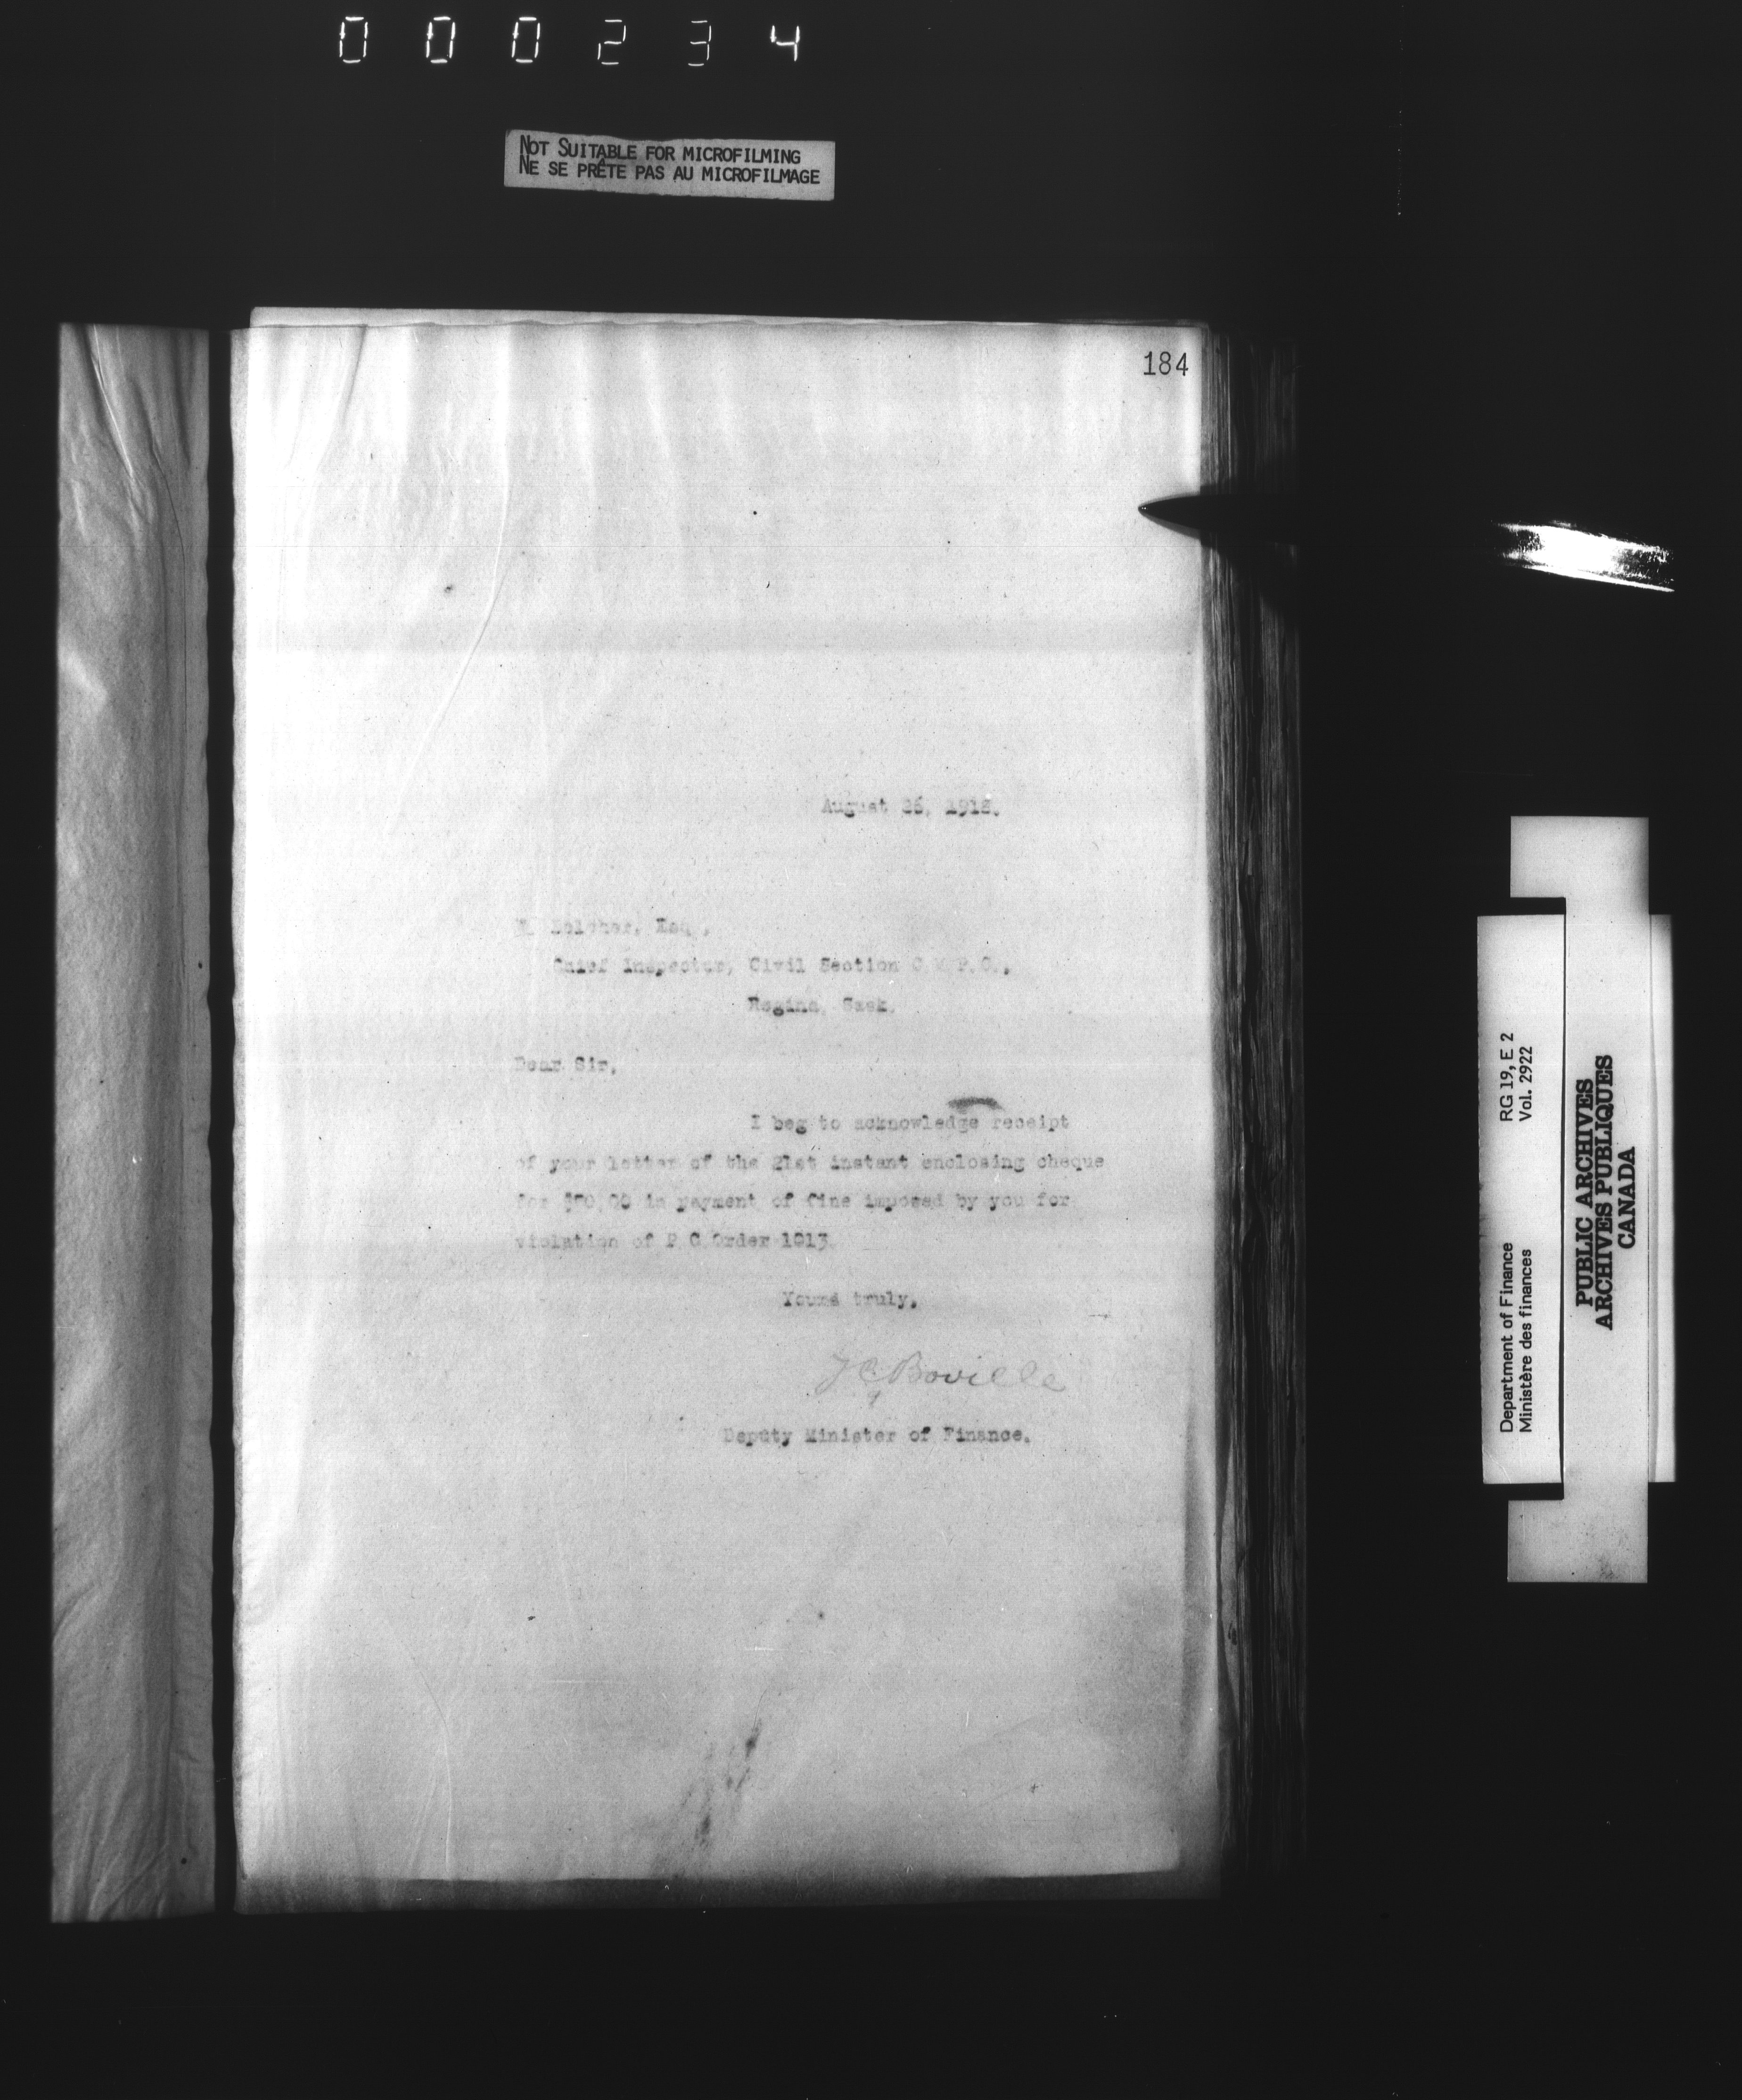 000234
NOT SUITABLE FOR MICROFILMING
NE SE PRÊTE PAS AU MICROFILMAGE
184
August 26, 1918.
Esq.,
Chief Inspector, Civil Section C.M.P.C.,
Regina, Sask.
Dear Sir,
I beg to acknowledge receipt
of your letter of the 21st instant enclosing cheque
for in payment of fine imposed by you for
violation of P.C. Order 1013.
Yours truly,
J C Boville
Deputy Minister of Finance.
Department of Finance RG 19, E 2
Ministère des finances Vol. 2922
PUBLIC ARCHIVES
ARCHIVES PUBLIQUES
CANADA